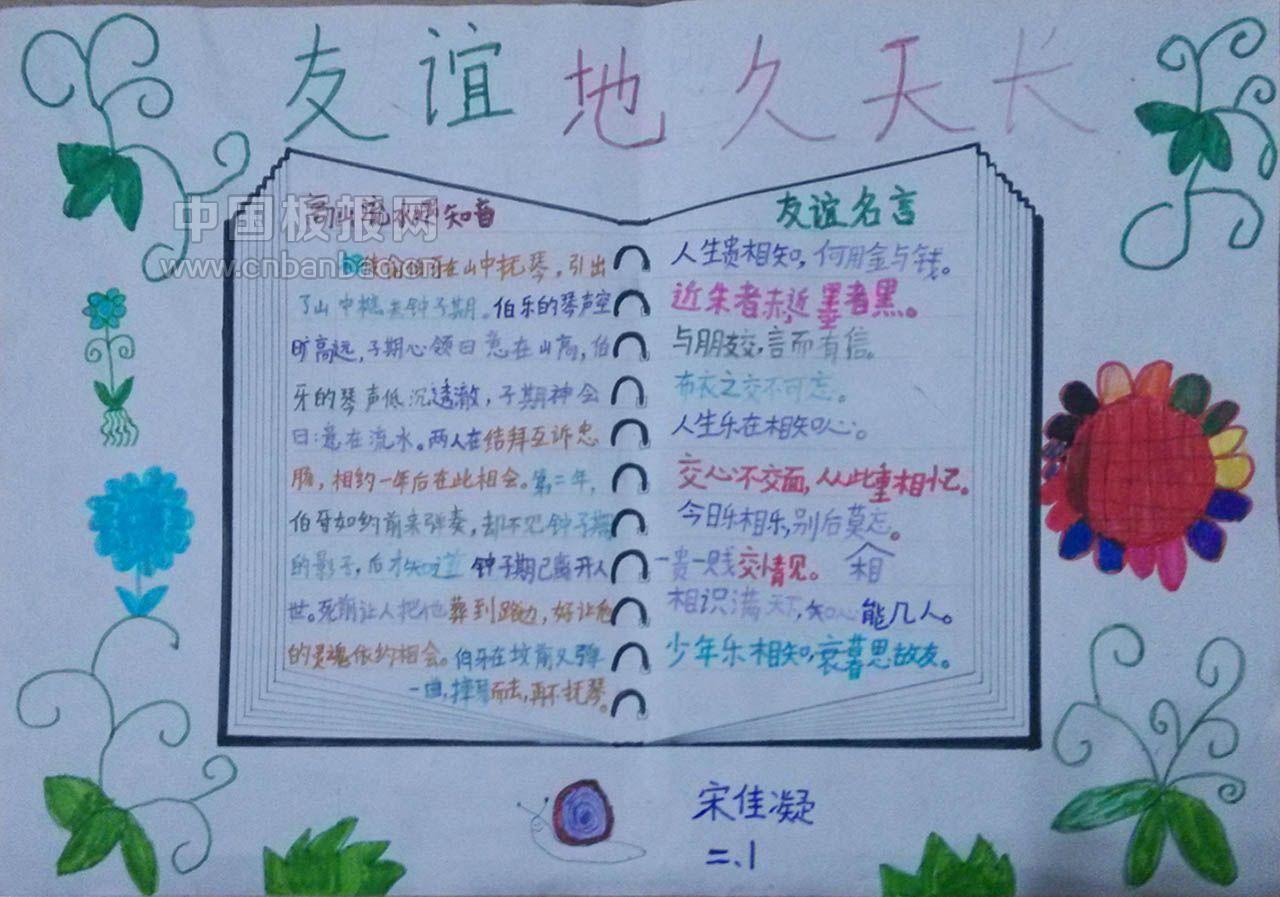 友谊地久天长
高山流水遇知音
中国板报网
www.cnbanbao.com
伯牙在山中抚琴，引出
了山中樵夫钟子期。伯乐的琴声空
旷高远，子期心领曰意在山高，伯
牙的琴声低沉透澈，子期神会
曰：意在流水。两人在结拜互诉忠
肠，相约一年后在此相会。第二年，
伯牙如约前来弹奏，却不见钟子期
的影子，后才知道钟子期已离开人
世。死前让人把他葬到路边，好让他
的灵魂依约相会。伯牙在坟前又弹
一曲，摔琴而去，再不抚琴。
友谊名言
人生贵相知，何用金与钱。
近朱者赤，近墨者黑。
与朋友交，言而有信。
布衣之交不可忘。
人生乐在相知心。
交心不交面，从此重相忆。
今日乐相乐，别后莫忘。
相
一贵一贱交情见。
相识满天下，知心能几人。
少年乐相知，衰暮思故友。
宋佳凝
二、1